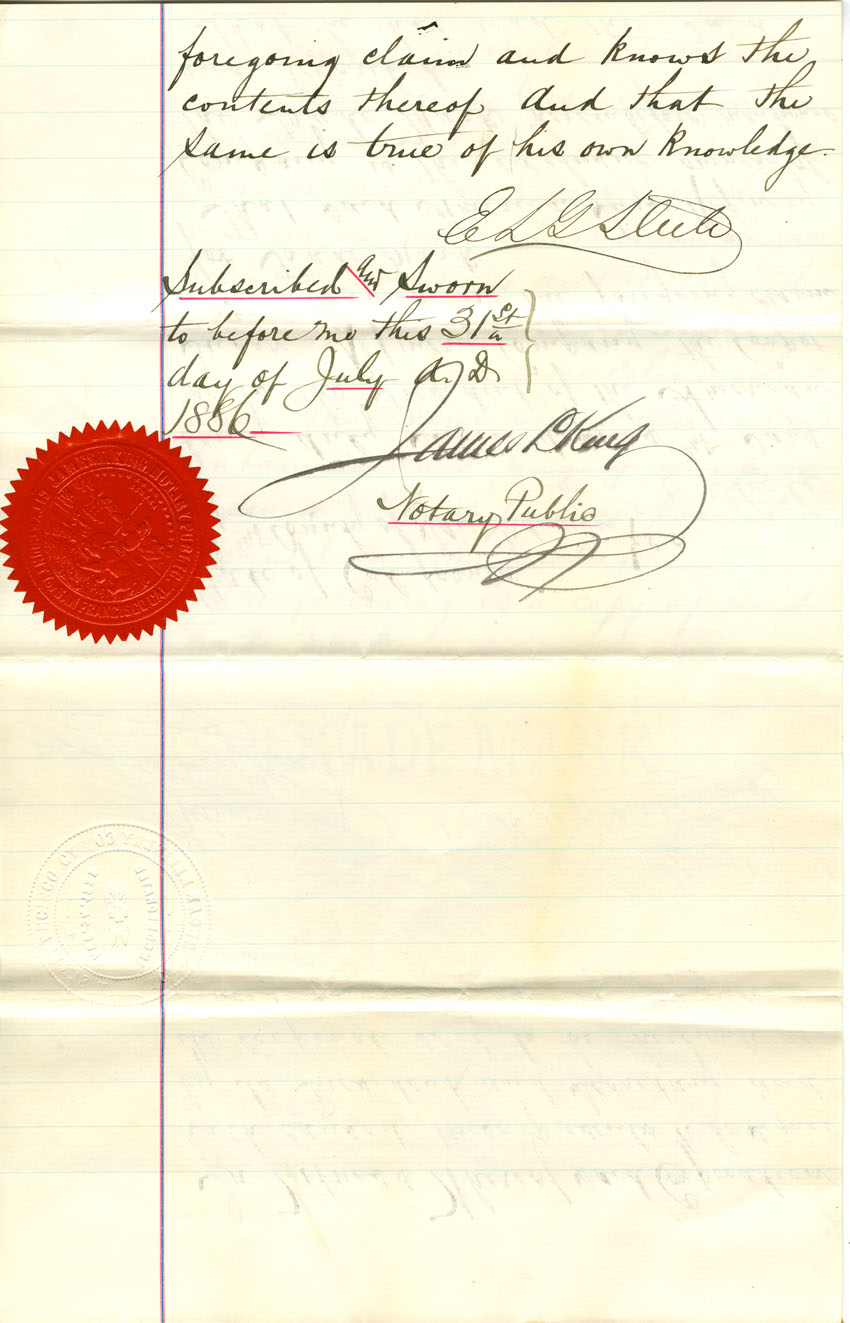 foregoing claim and knows the
contents thereof and that the
same is true of his own knowledge.
E L G Steele
Subscribed and Sworn
to before me this 31st
day of July A.D.
1886
James L King
Notary Public
NOTARY PUBLIC
SAN FRANCISCO CAL.